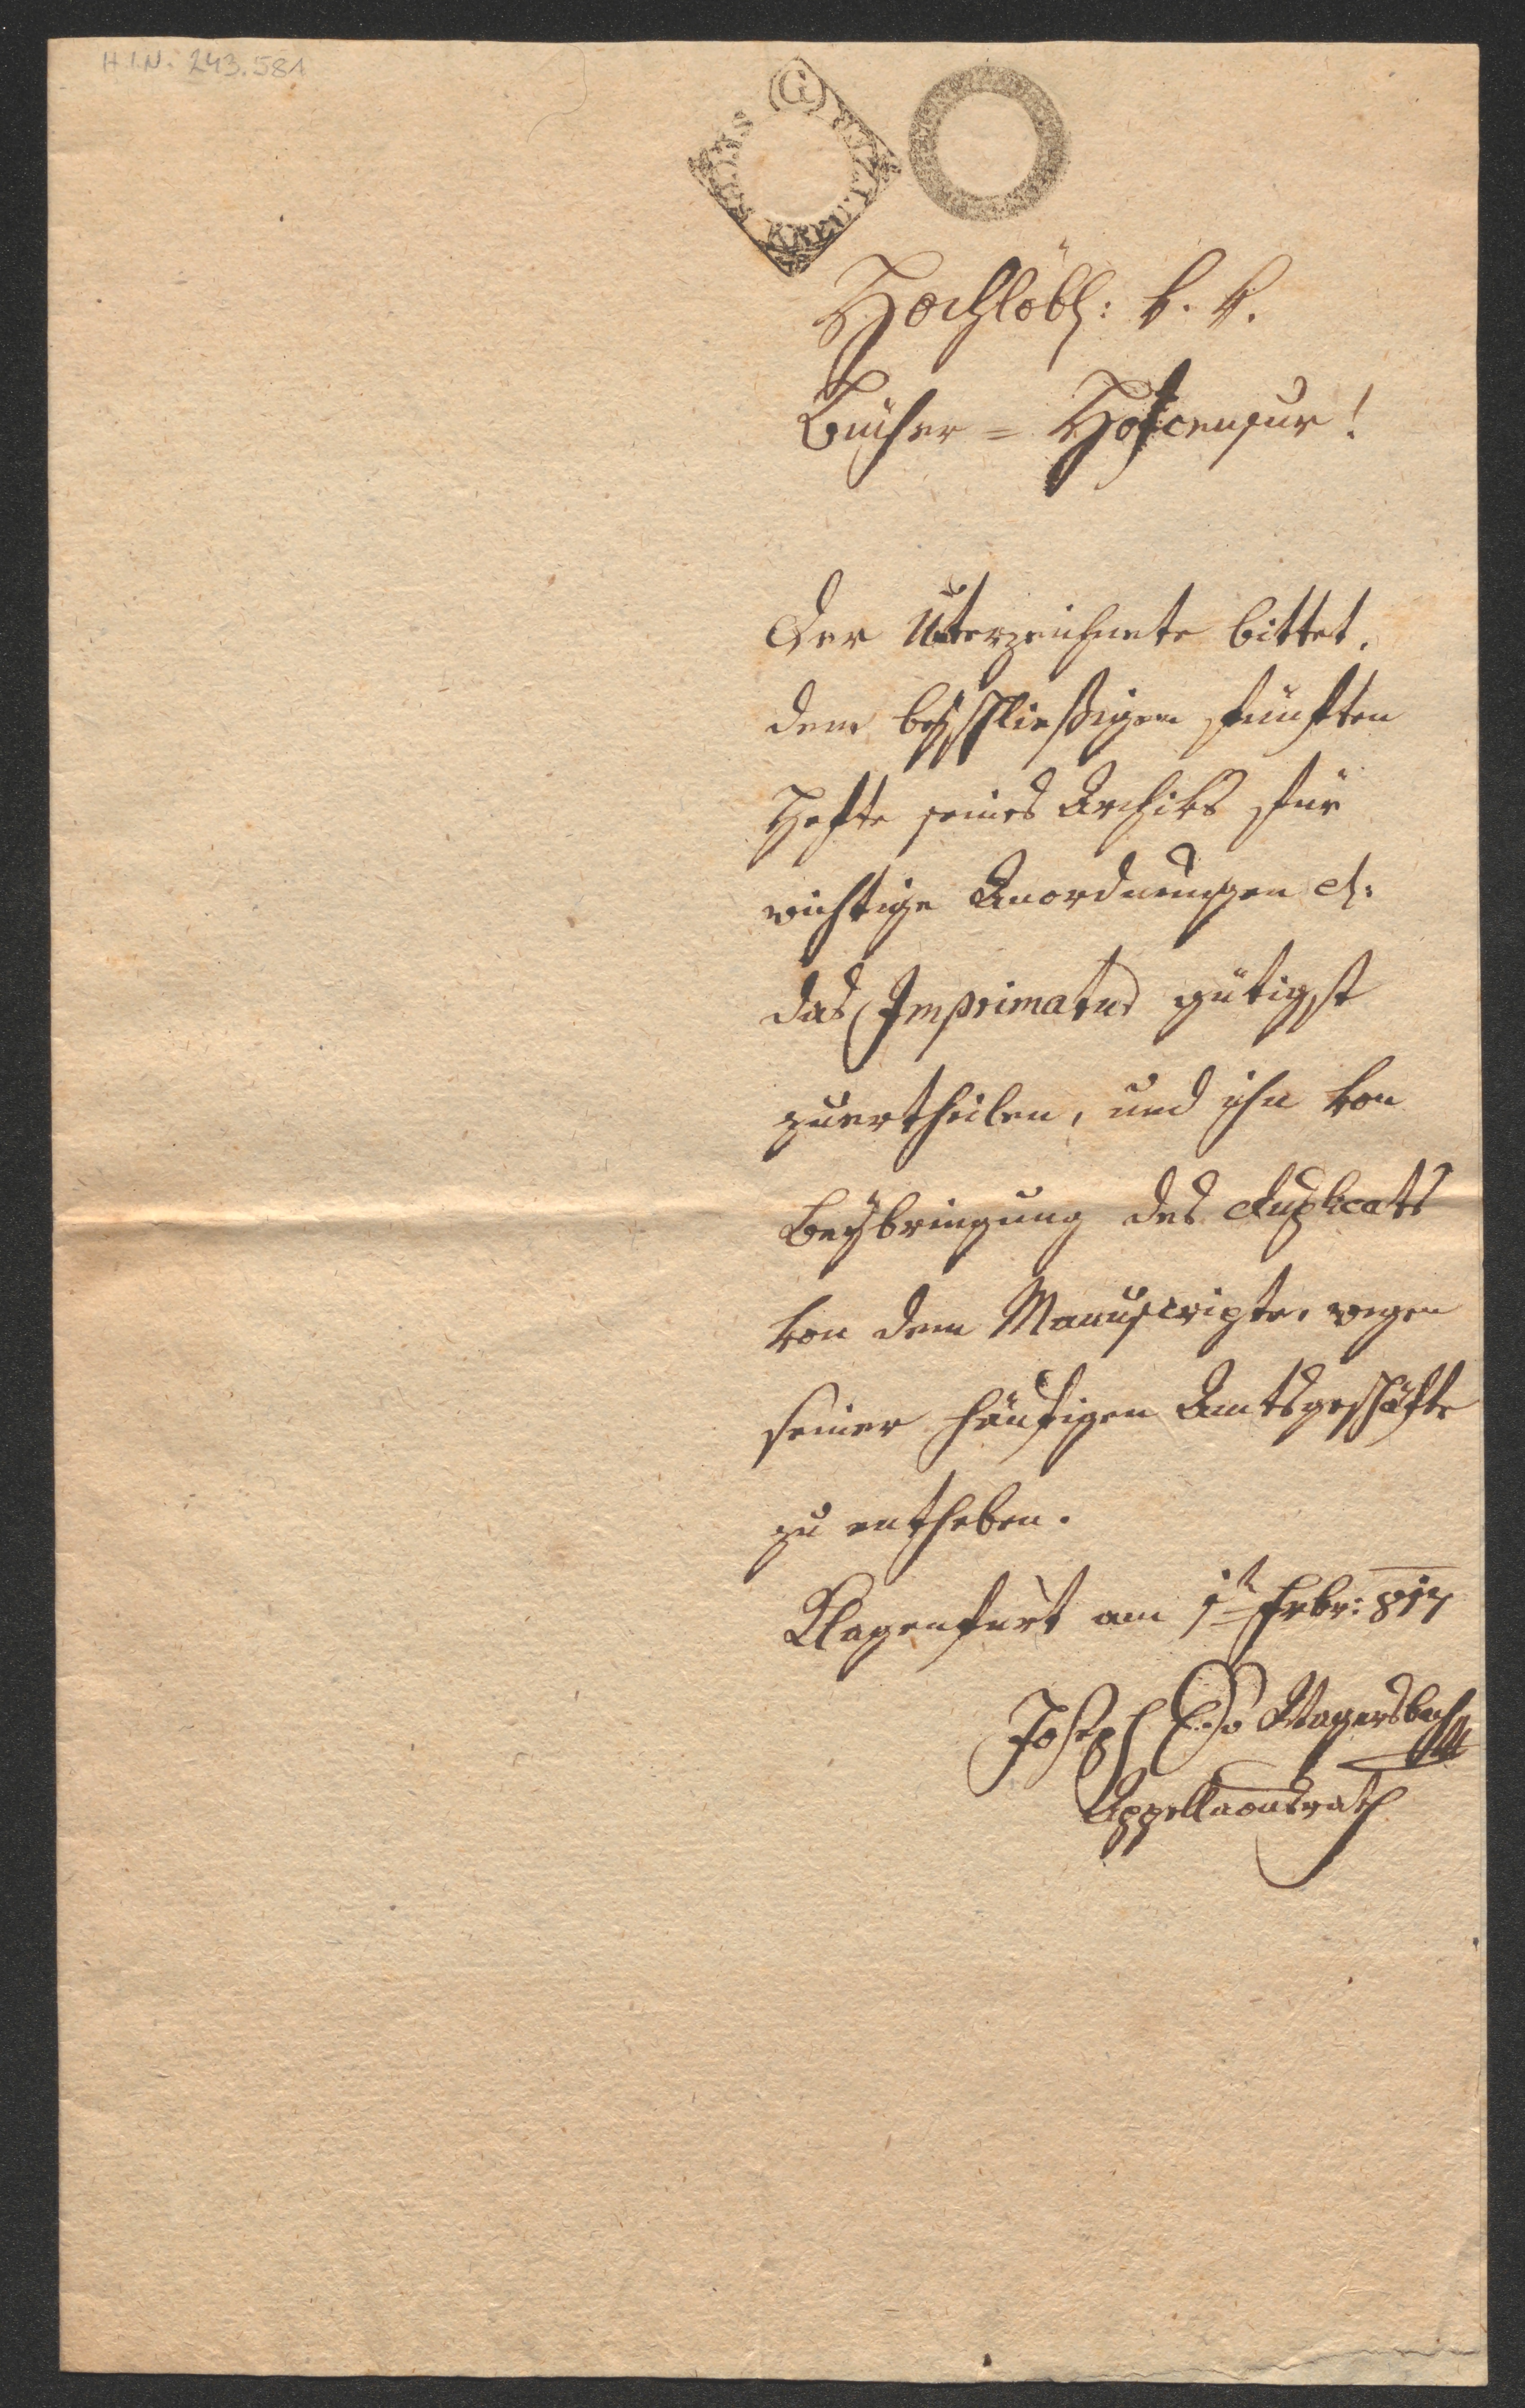 H.I.N. 243.581
(G)
SECHS KREUTZER
Hochlöbl: k. k.
Bücher = Hofcensur!
Der Unterzeichnete bittet,
dem beyschließigen fünften
Hefte seines Archivs für
wichtige Anordnungen etc:
das Imprimatur gütigst
zuertheilen, und ihn von
Beybringung des Duplicats
von dem Manuscripte, wegen
seiner häufigen Amtsgeschäfte
zu entheben.
Klagenfurt am 1t Febr: 817
Joseph Wagersbach
Appellaonsrath